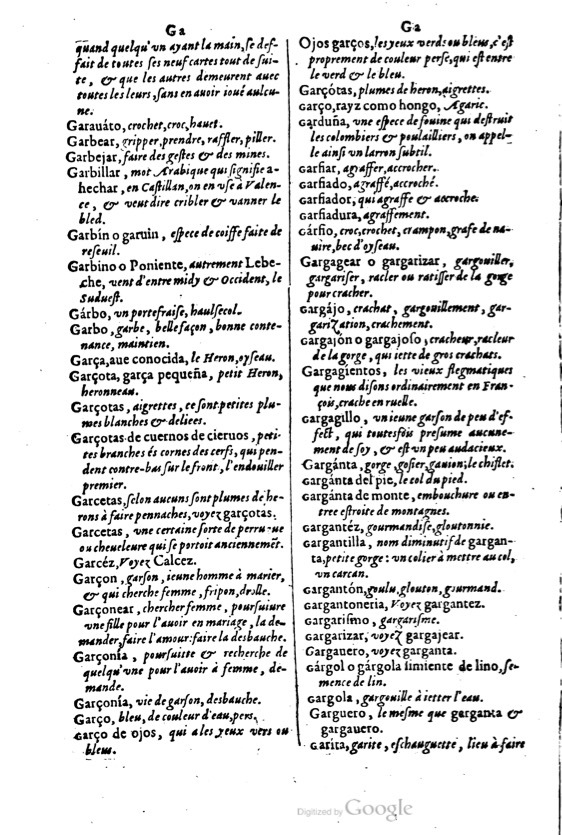 Ga
quand quelqu'vn ayant la main, se def-
fait de toutes ses neuf cartes tout de sui-
te, & que les autres demeurent auec
toutes les leurs, sans en auoir ioué aulcu-
ne.
Garauáto, crochet, croc, hauet.
Garbear, gripper, prendre, raffler, piller.
Garbejar, faire des gestes & des mines.
Garbillar, mot Arabique qui signifie a-
hechar, en Castillan, on en vse à Valen-
ce, & veut dire cribler & vanner le
bled.
Garbín o garuin, espece de coiffe faite de
reseuil.
Garbino o Poniente, autrement Lebe-
che, vent d'entre midy & Occident, le
Suduest.
Gárbo, vn portefraise, haulsecol.
Garbo, garbe, belle façon, bonne conte-
nance, maintien.
Garça, aue conocida, le Heron, oyseau.
Garçota, garça pequeña, petit Heron,
heronneau.
Garçotas, aigrettes, ce sont petites plu-
mes blanches & deliees.
Garçotas de cuernos de cieruos, peti-
tes branches és cornes des cerfs, qui pen-
dent contre-bas sur le front, l'endouiller
premier.
Garcetas, selon aucuns sont plumes de he-
rons à faire pennaches, voyez garçotas.
Garcetas, vne certaine sorte de perruque
ou cheueleure qui se portoit anciennemẽt.
Garcéz, Voyez Calcez.
Garçon, garson, ieune homme à marier,
& qui cherche femme, fripon, drolle.
Garçonear, chercher femme, poursuiure
vne fille pour l'auoir en mariage, la de-
mander, faire l'amour: faire la desbauche.
Garçonía, poursuitte & recherche de
quelqu'vne pour l'auoir à femme, de-
mande.
Garçonía, vie de garson, desbauche.
Garço, bleu, de couleur d'eau, pers.
Garço de ojos, qui a les yeux vers ou
bleus.
Ga
Ojos garços, les yeux verds ou bleus, c'est
proprement de couleur perse, qui est entre
le verd & le bleu.
Garçótas, plumes de heron, aigrettes.
Garço, rayz como hongo, Agaric.
Garduña, vne espece de fouine qui destruit
les colombiers & poulailliers, on appel-
le ainsi vn larron subtil.
Garfiar, agraffer, accrocher.
Garfiado, agraffé, accroché.
Garfiador, qui agraffe & accroche.
Garfiadura, agraffement.
Gárfio, croc, crochet, crampon, grafe de na-
uire, bec d'oyseau.
Gargagear o gargarizar, gargouiller,
gargariser, racler ou ratisser de la gorge
pour cracher.
Gargájo, crachat, gargouillement, gar-
garization, crachement.
Gargajón o gargajoso, cracheur, racleur
de la gorge, qui iette de gros crachats.
Gargagientos, les vieux flegmatiques
que nous disons ordinairement en Fran-
çois, crache en ruelle.
Gargagillo, vn ieune garson de peu d'ef-
fect, qui toutesfois presume aucune-
ment de soy, & est vn peu audacieux.
Gargánta, gorge, gosier, gauion, le chiflet.
Gargánta del pie, le col du pied.
Gargánta de monte, embouchure ou en-
tree estroite de montagnes.
Gargantéz, gourmandise, gloutonnie.
Gargantilla, nom diminutif de gargan-
ta, petite gorge: vn colier à mettre au col,
vn carcan.
Gargantón, goulu, glouton, gourmand.
Gargantoneria, Voyez gargantez.
Gargarismo, gargarisme.
Gargarizar, voyez gargajear.
Gargauero, voyez garganta.
Gárgol o gárgola simiente de lino, se-
mence de lin.
Gargola, gargouille à ietter l'eau.
Garguero, le mesme que garganta &
gargauero.
Garita, garite, eschauguette, lieu à faire
Digitized by Google